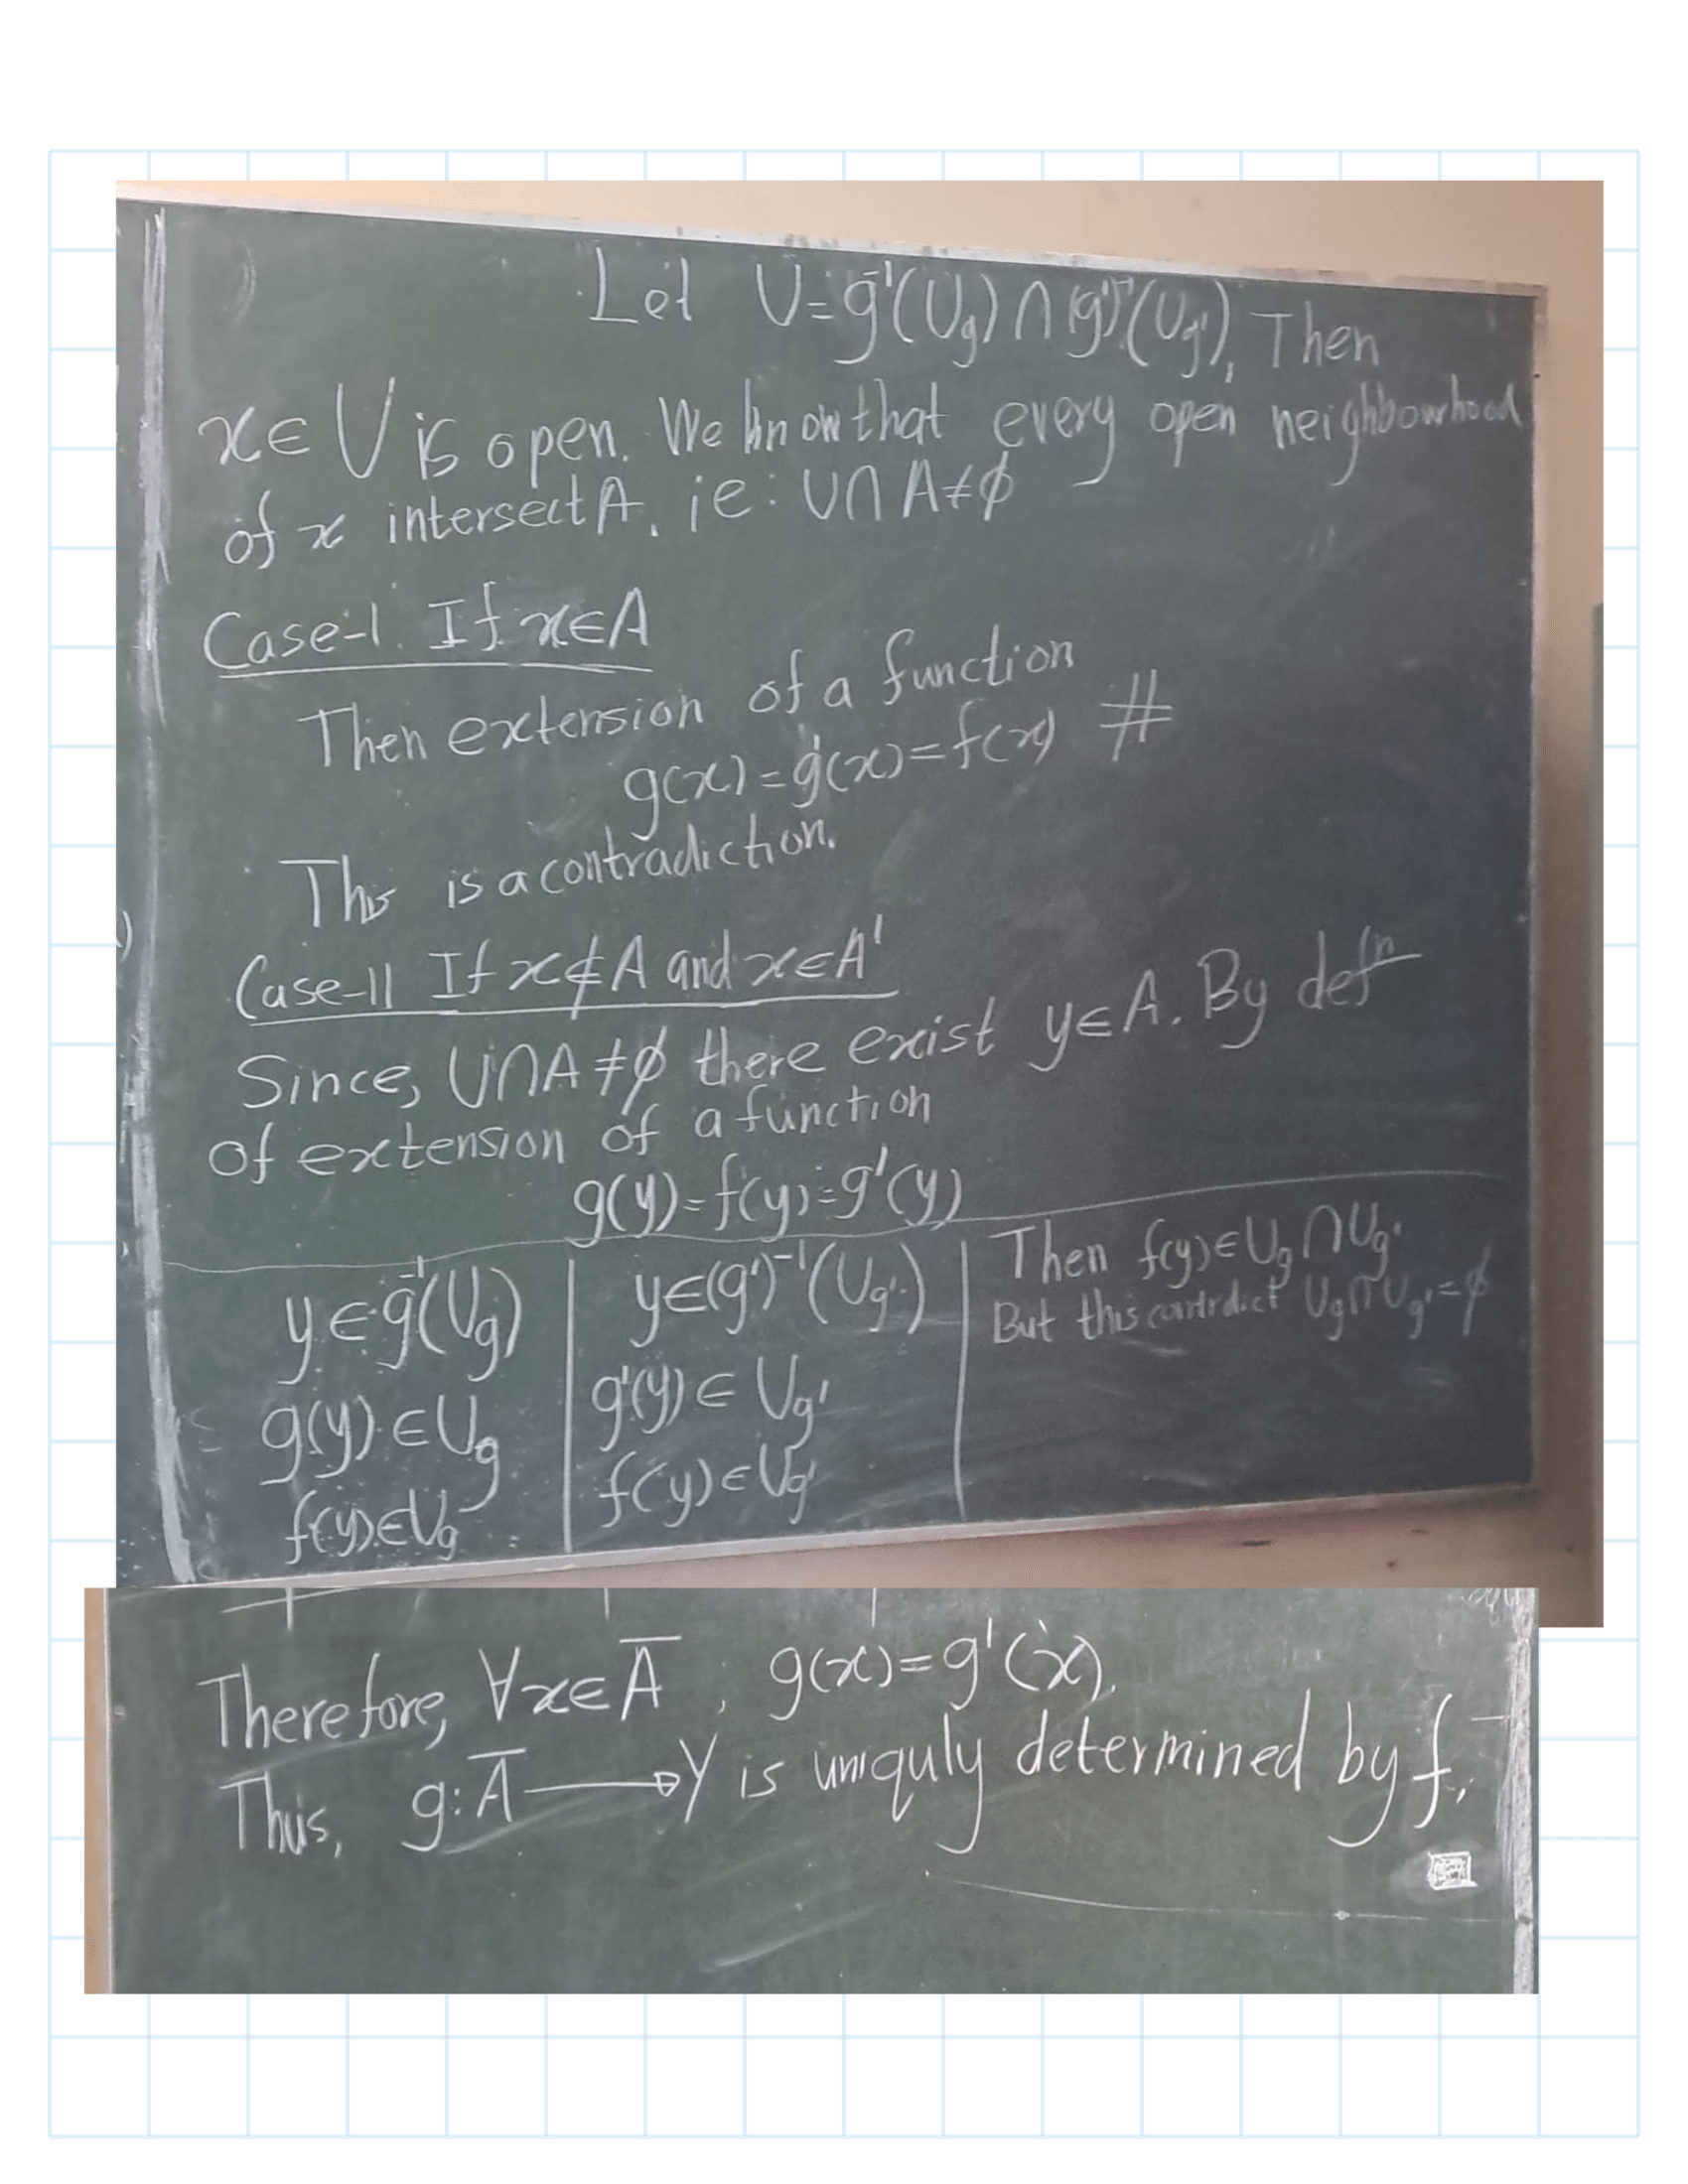 Let U = g⁻¹(U_g) ∩ (g')⁻¹(U_g'), Then
x ∈ U is open. We know that every open neighbourhood
of x intersect A. ie: U ∩ A ≠ ϕ
Case-I. If x ∈ A
Then extension of a function
g(x) = g'(x) = f(x) #
This is a contradiction.
Case-II If x ∉ A and x ∈ A'
Since, U ∩ A ≠ ϕ there exist y ∈ A. By defⁿ
of extension of a function
g(y) = f(y) = g'(y)
y ∈ g⁻¹(U_g)
g(y) ∈ U_g
f(y) ∈ U_g
y ∈ (g')⁻¹(U_g')
g'(y) ∈ U_g'
f(y) ∈ U_g'
Then f(y) ∈ U_g ∩ U_g'
But this contrdict U_g ∩ U_g' = ϕ
Therefore, ∀x ∈ A̅, g(x) = g'(x).
Thus, g: A̅ → Y is uniquly determined by f.